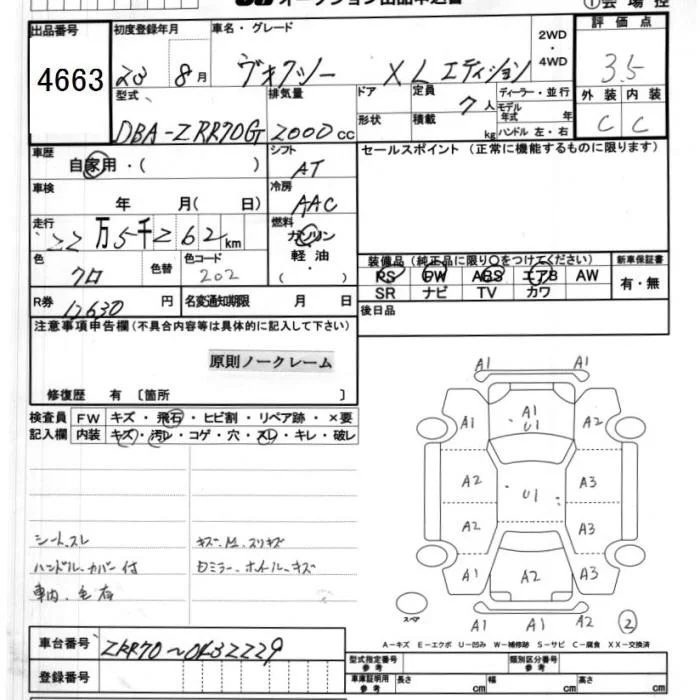 ①会場控
出品番号
4663
初度登録年月
車名・グレード
20 8月
ヴォクシー XLエディション
2WD
・
4WD
評価点
3.5
外装 内装
C C
型式
DBA-ZRR70G
排気量
2000cc
ドア
形状
定員
7人
積載
kg
ディーラー・並行
モデル
年式 年
ハンドル 左・右
車歴
自家用・( )
シフト
AT
セールスポイント (正常に機能するものに限ります)
車検
年 月( 日)
冷房
AAC
走行
22万5千262km
燃料
ガソリン
軽油
・( )
色
クロ
色替
色コード
202
装備品 (純正品に限り○をつけてください)
PS PW ABS エアB AW
SR ナビ TV カワ
新車保証書
有・無
R券
12630円
名変通知期限 月 日
後日品
注意事項申告欄(不具合内容等は具体的に記入して下さい)
原則ノークレーム
修復歴 有 〔箇所 〕
検査員
記入欄
FW キズ・飛石・ヒビ割・リペア跡・×要
内装 キズ・汚レ・コゲ・穴・スレ・キレ・破レ
シートスレ
キズ・M.スリキズ
ハンドル.カバー付
Dミラー.ホイル.キズ
車内.毛有
A1 A1
A1 A1 A2
U1
A2 A3
U1
A2 A3
A1 A2 A3
A1 A1 A2
スペア
2
A-キズ E-エクボ U-凹み W-補修跡 S-サビ C-腐食 XX-交換済
車台番号
ZRR70~0432229
登録番号
型式指定番号
参考
類別区分番号
参考
車庫証明用
参考
長さ cm
幅 cm
高さ cm